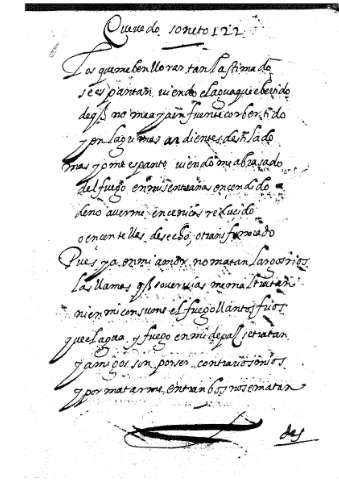 Quevedo soneto 122
Los que me ben llorar tan lastimado
se espantan viendo el agua que e bertido
de q̃ no me aya en fuente conbertido
y en lagrimas ardientes destilado
mas yo me espanto viendome abrasado
del fuego en mis entrañas encendido
de no averme en ceniças reducido
o en centellas desecho o transformado
Pues ya en mi amor no matan largos rios
las llamas q̃ sovervias me maltratan
ni en mi consume el fuego llantos frios
que el agua y fuego en mi de paz se tratan
y amigos son por ser contrarios mios
y por matarme entranbos no se matan